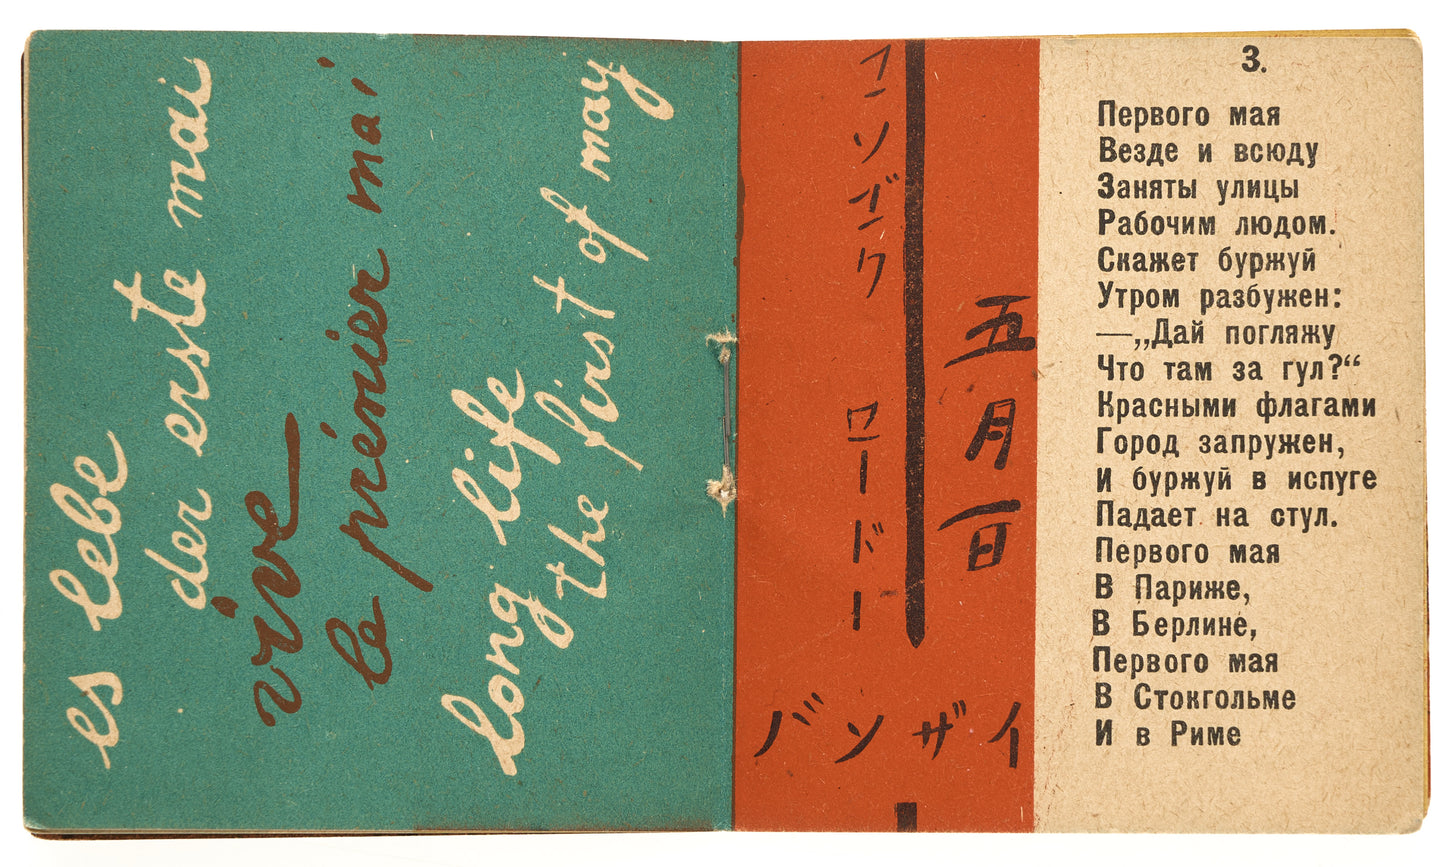 es lebe
der erste mai
vive
le prénier mai
long life
the first of may
ロードー
五月一日
バンザイ
3.
Первого мая
Везде и всюду
Заняты улицы
Рабочим людом.
Скажет буржуй
Утром разбужен:
—„Дай погляжу
Что там за гул?“
Красными флагами
Город запружен,
И буржуй в испуге
Падает на стул.
Первого мая
В Париже,
В Берлине,
Первого мая
В Стокгольме
И в Риме